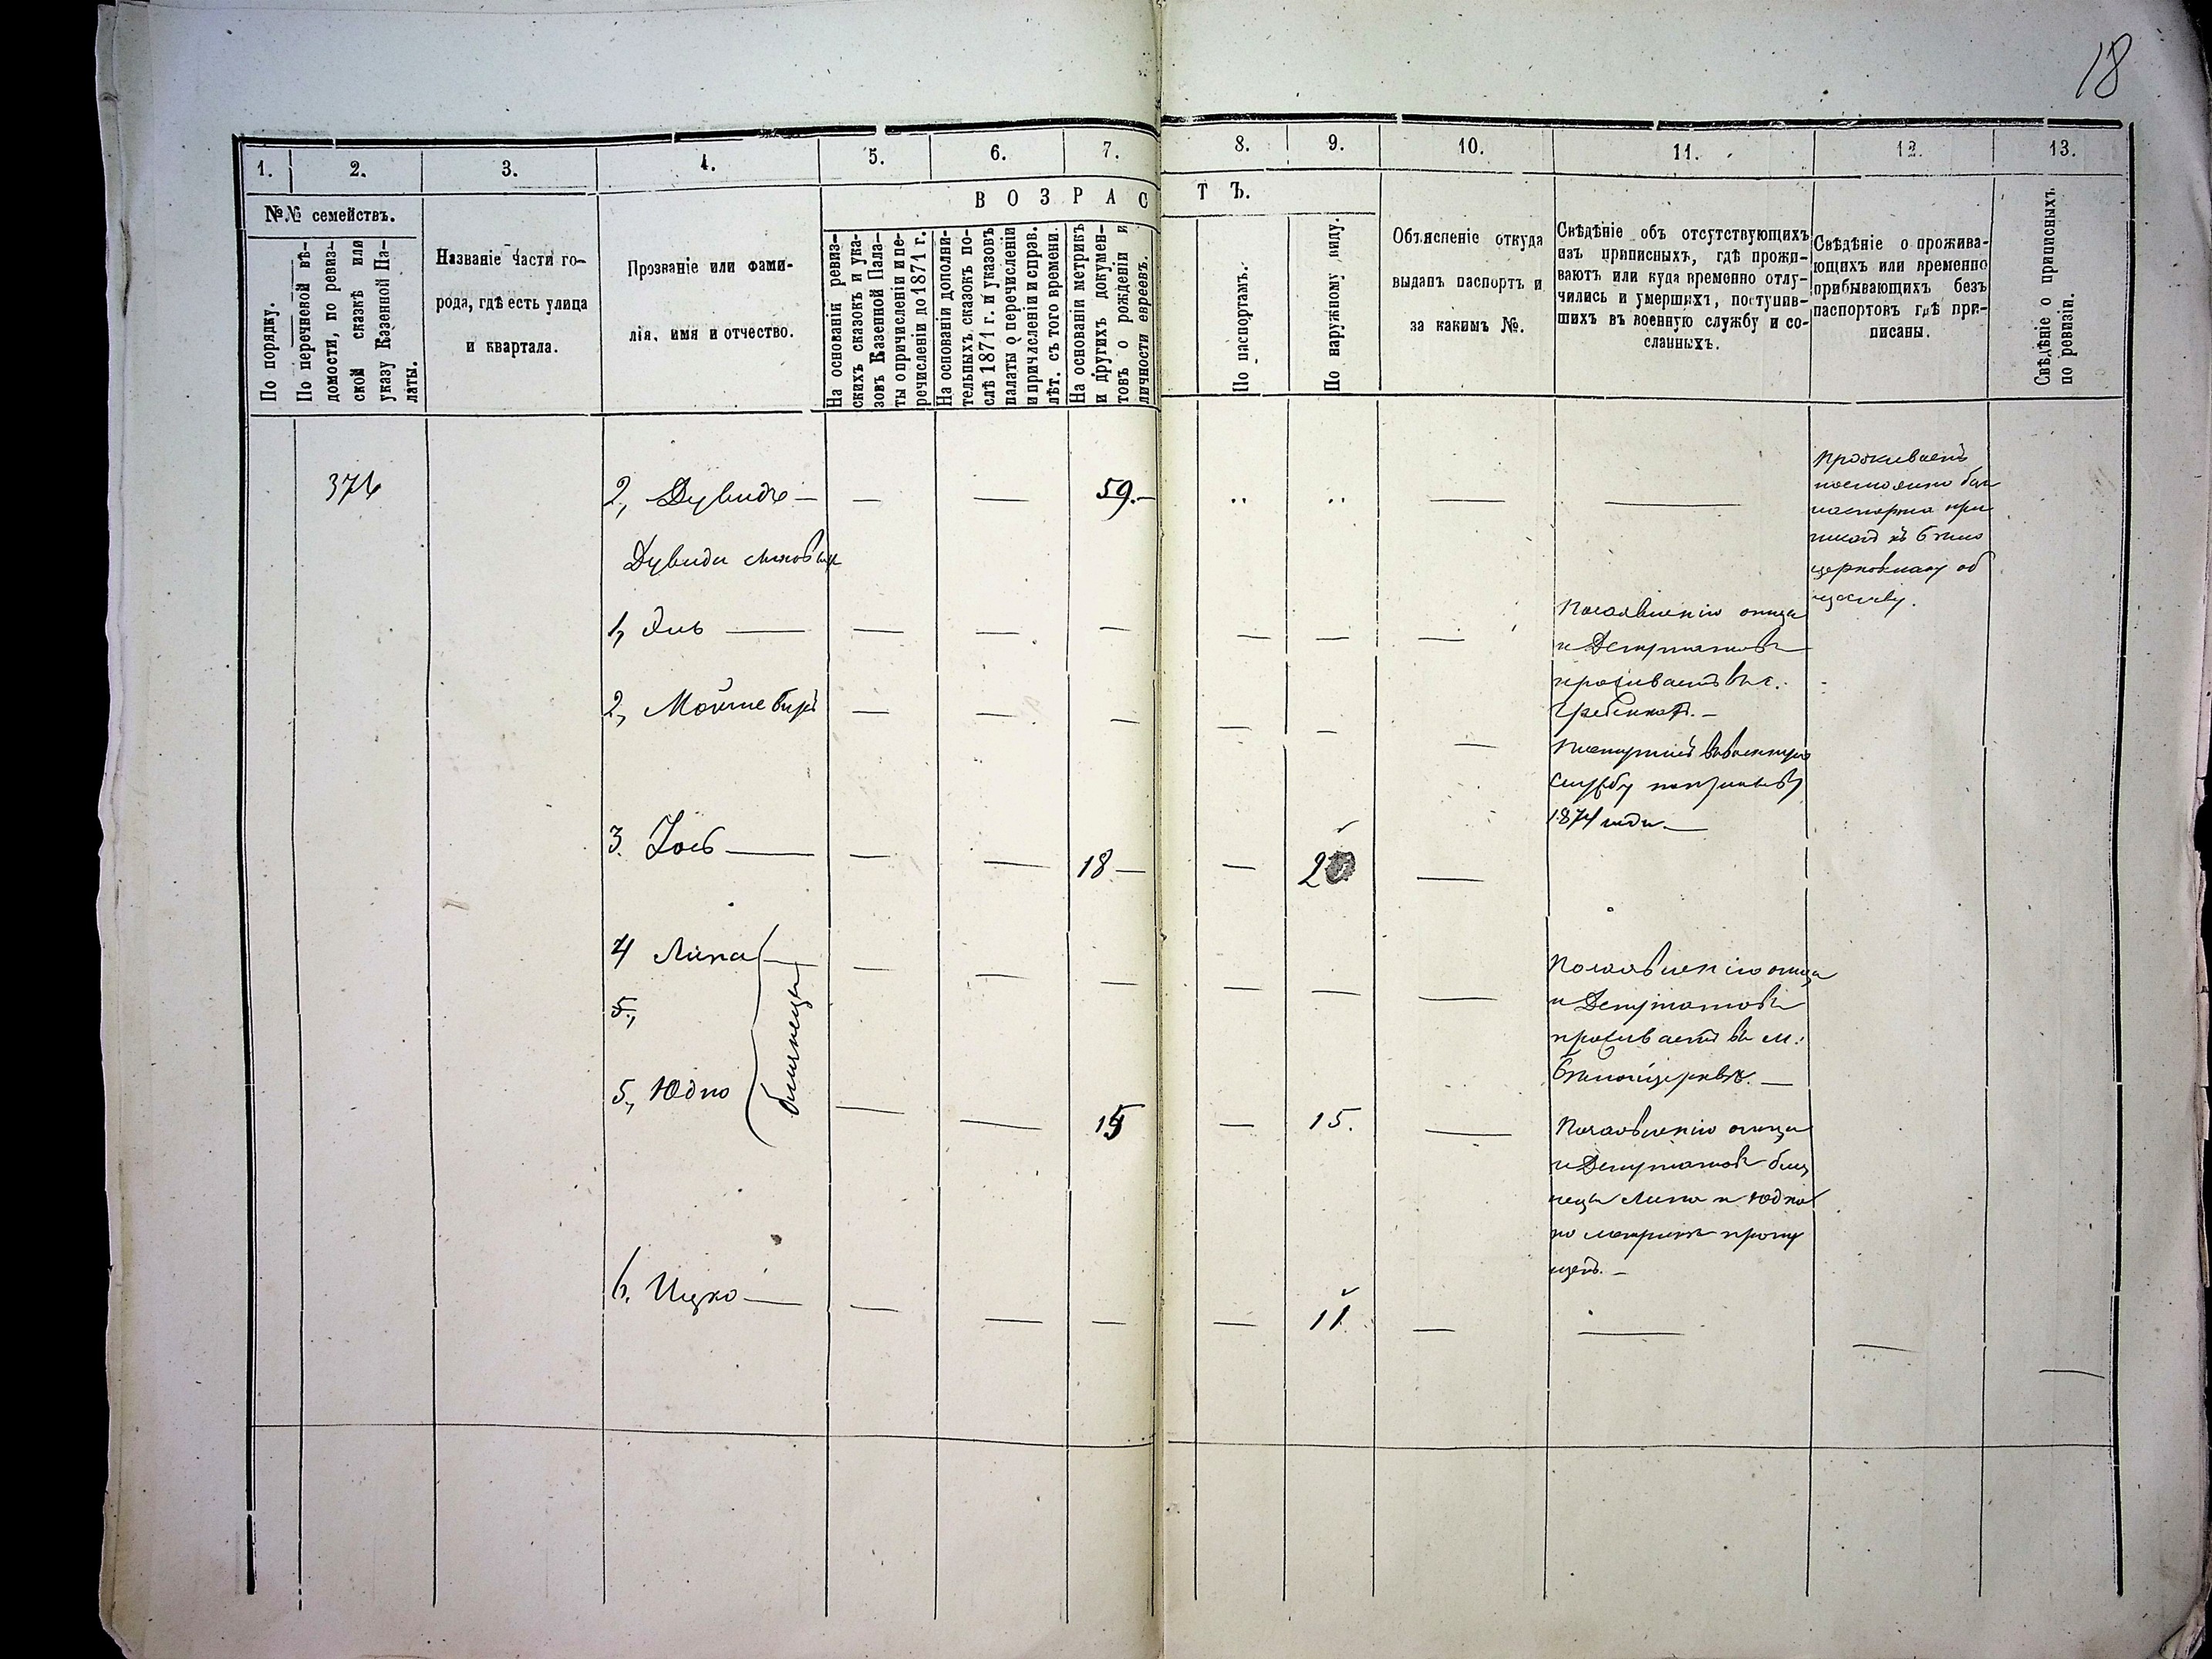 18
1.
2.
3.
4.
5.
6.
7.
8.
9.
10.
11.
12.
13.
ВОЗРАСТЪ.
№№ семействъ.
По порядку.
По перечневой вѣ-
домости, по ревиз-
ской сказкѣ или
указу Казенной Па-
латы.
Названіе части го-
рода, гдѣ есть улица
и квартала.
Прозваніе или фами-
лія, имя и отчество.
На основаніи ревиз-
скихъ сказокъ и ука-
зовъ Казенной Пала-
ты о причисленіи и пе-
речисленіи до 1871 г.
На основаніи дополни-
тельныхъ сказокъ по-
слѣ 1871 г. и указовъ
палаты о перечисленіи
и причисленіи и справ.
лѣт. съ того времени.
На основаніи метрикъ
и другихъ докумен-
товъ о рожденіи и
личности евреевъ.
По паспортамъ.
По наружному виду.
Объясненіе откуда
выданъ паспортъ и
за какимъ №.
Свѣдѣніе объ отсутствующихъ
изъ приписныхъ, гдѣ прожи-
ваютъ или куда временно отлу-
чились и умершихъ, поступив-
шихъ въ военную службу и со-
сланныхъ.
Свѣдѣніе о прожива-
ющихъ или временно
прибывающихъ безъ
паспортовъ гдѣ при-
писаны.
Свѣдѣніе о приписныхъ
по ревизіи.
374
2, Дувидъ — — — 59.—
Проживаетъ
постоянно без
паспорта при
писан къ Бѣло
церковному об
ществу.
Дувида сыновья
1, Эль
По заявленію отца
и Депутатовъ
проживаетъ въ с.
Гребенкахъ. —
2, Мойше Беръ
Поступилъ въ военную
службу по призыву
1874 года —
3. Іось — — — 18 — — 20
4 Липа
5.,
5., Юдко
близнецы
По заявленію отца
и Депутатовъ
проживаетъ въ м.
Бѣлойцеркви. —
15 — 15.
По заявленію отца
и Депутатовъ близ
нецы Липа и Юдко
по метрикѣ пропу
щенъ. —
6. Ицко — — — — — 11.